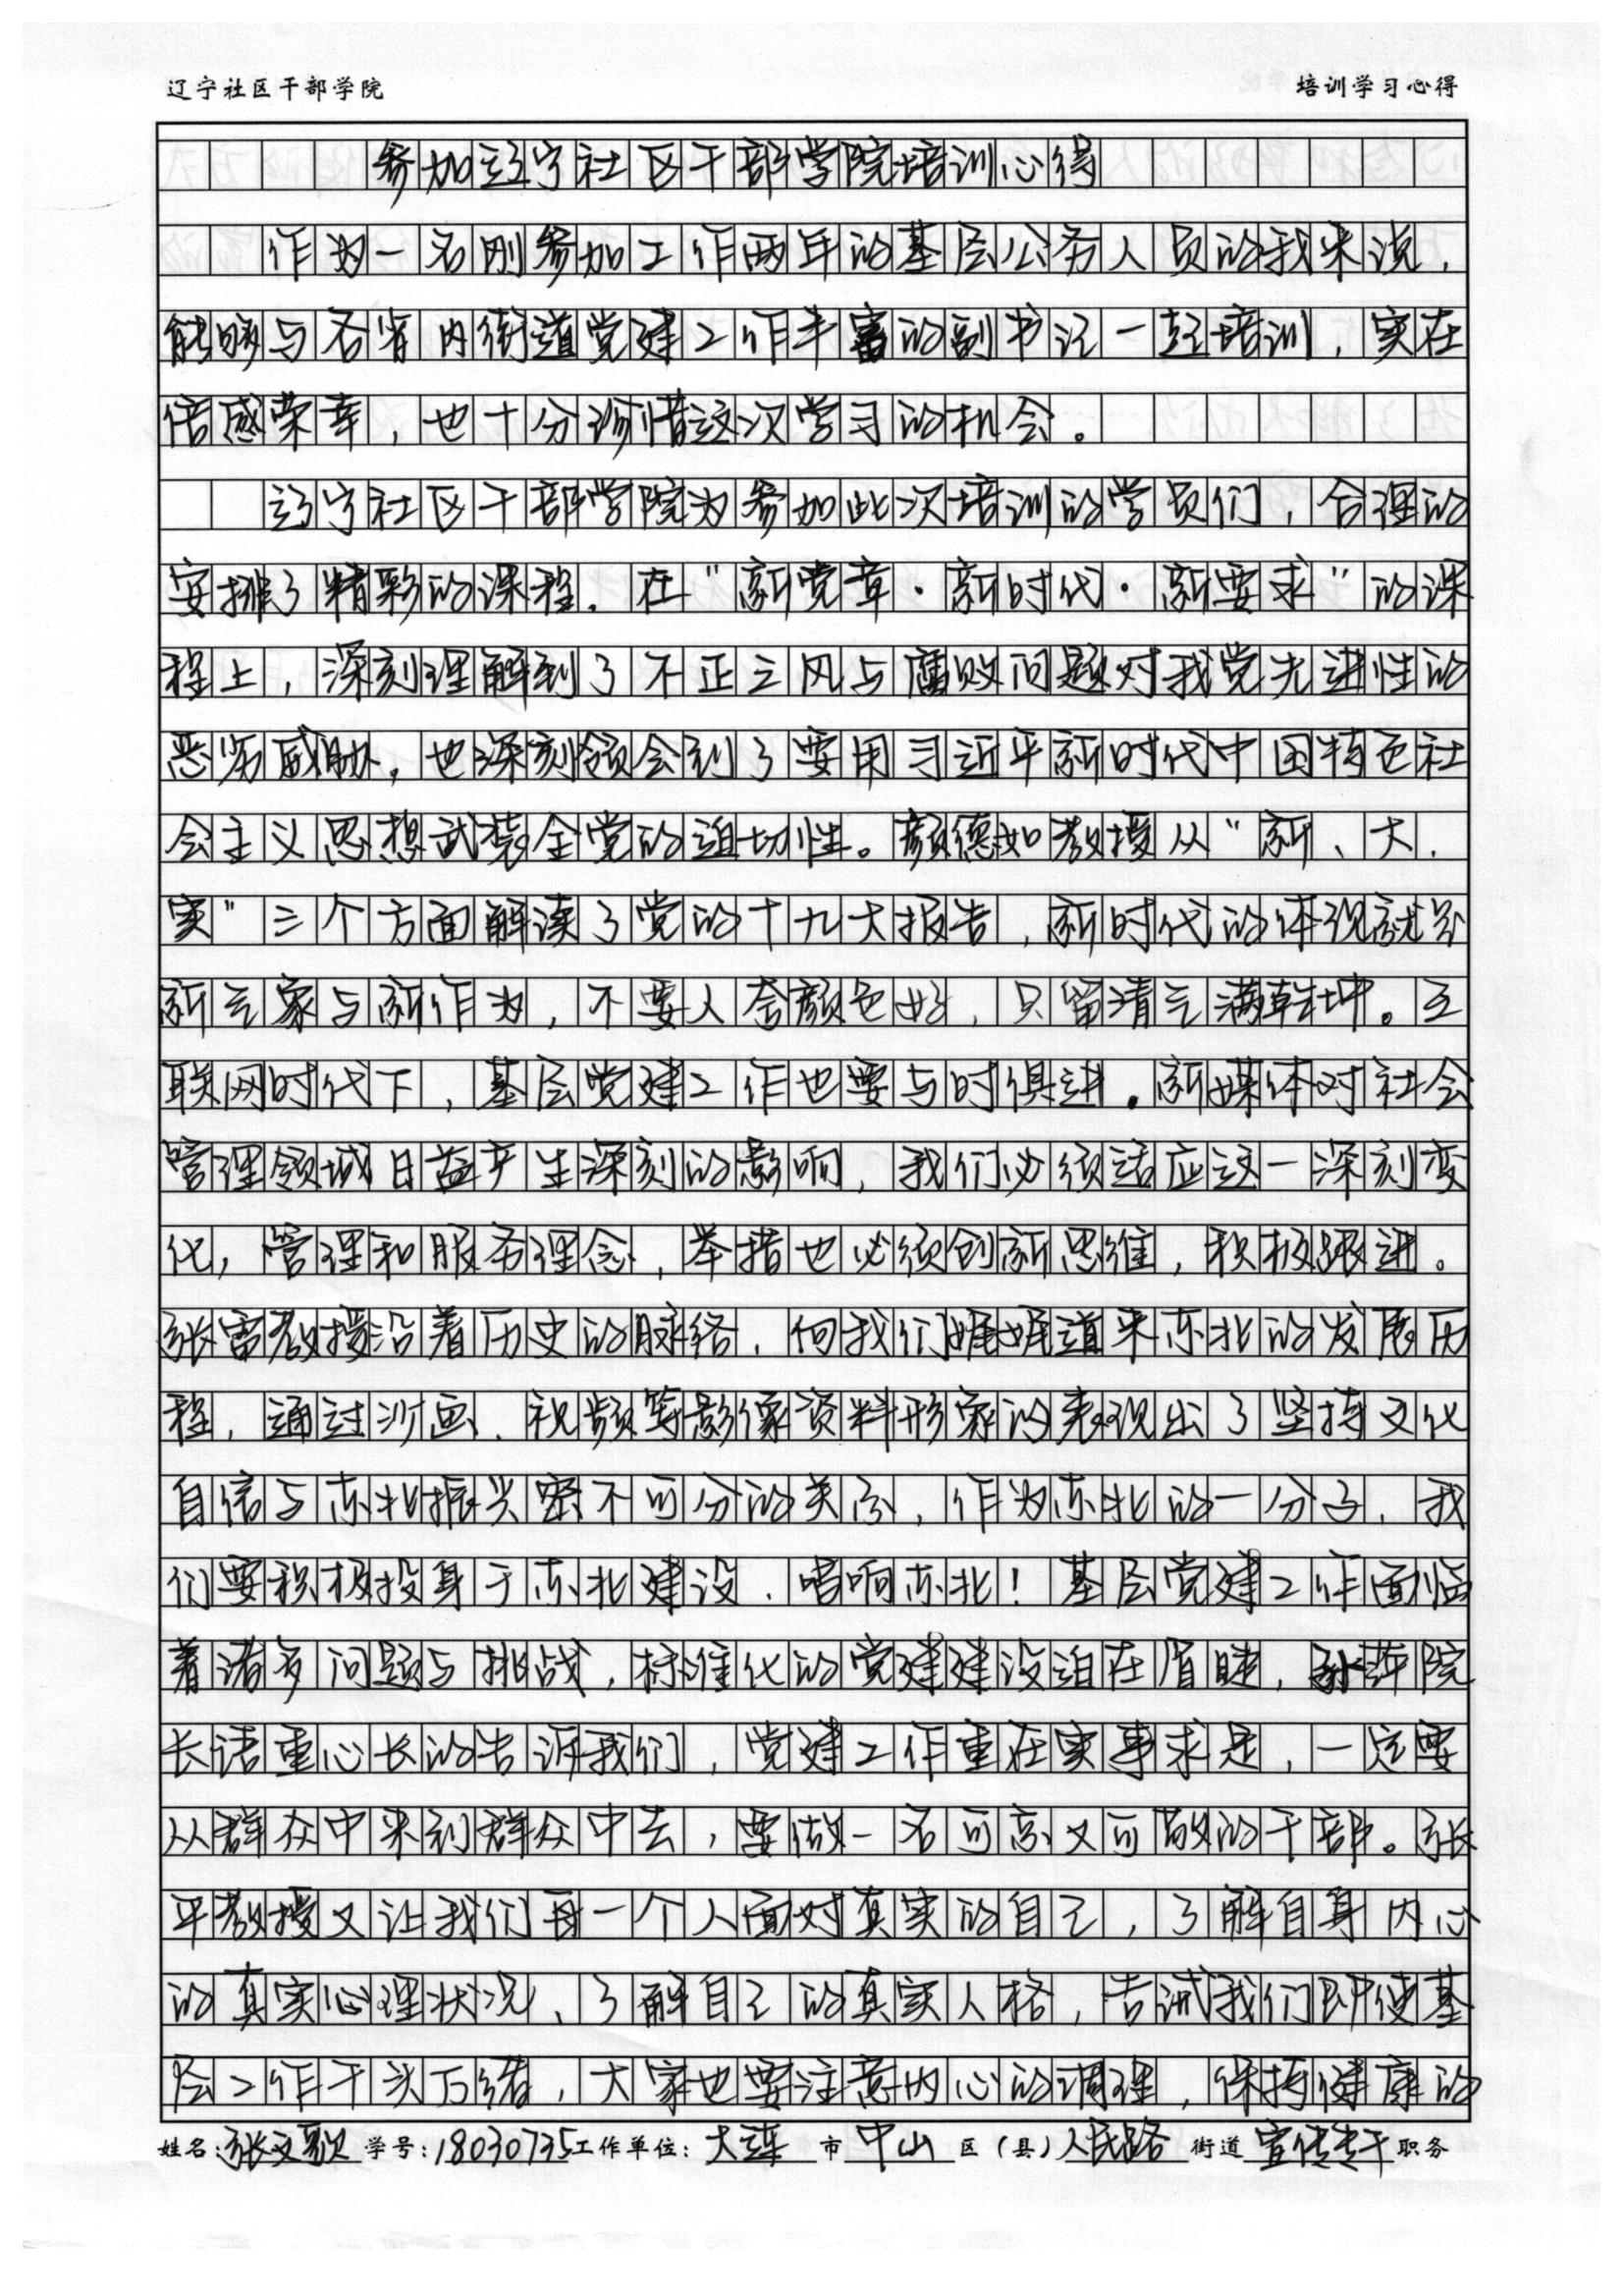 辽宁社区干部学院 培训学习心得
参加辽宁社区干部学院培训心得
作为一名刚参加工作两年的基层公务人员的我来说，
能够与各省内街道党建工作丰富的副书记一起培训，实在
倍感荣幸，也十分珍惜这次学习的机会。
辽宁社区干部学院为参加此次培训的学员们，合理的
安排了精彩的课程。在“新党章·新时代·新要求”的课
程上，深刻理解到了不正之风与腐败问题对我党先进性的
恶劣威胁，也深刻领会到了要用习近平新时代中国特色社
会主义思想武装全党的迫切性。颜德如教授从“新、大、
实”三个方面解读了党的十九大报告，新时代的体现就分
新气象与新作为，不要人夸颜色好，只留清气满乾坤。互
联网时代下，基层党建工作也要与时俱进。新媒体对社会
管理领域日益产生深刻的影响，我们必须适应这一深刻变
化，管理和服务理念，举措也必须创新思维，积极跟进。
张雷教授沿着历史的脉络，向我们娓娓道来东北的发展历
程，通过沙画、视频等影像资料形象的表现出了坚持文化
自信与东北振兴密不可分的关系，作为东北的一分子，我
们要积极投身于东北建设，唱响东北！基层党建工作面临
着诸多问题与挑战，标准化的党建建设迫在眉睫，孙萍院
长语重心长的告诉我们，党建工作重在实事求是，一定要
从群众中来到群众中去，要做一名可亲又可敬的干部。张
平教授又让我们每一个人面对真实的自己，了解自身内心
的真实心理状况，了解自己的真实人格，告诫我们即使基
层工作千头万绪，大家也要注意内心的调理，保持健康的
姓名：张文歌 学号：18030735 工作单位：大连 市 中山 区（县）人民路 街道 宣传专干 职务